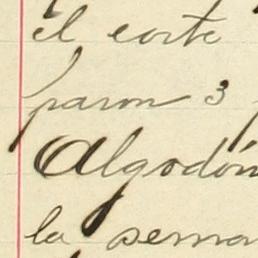 el corte
paron 3
Algodón
la sema